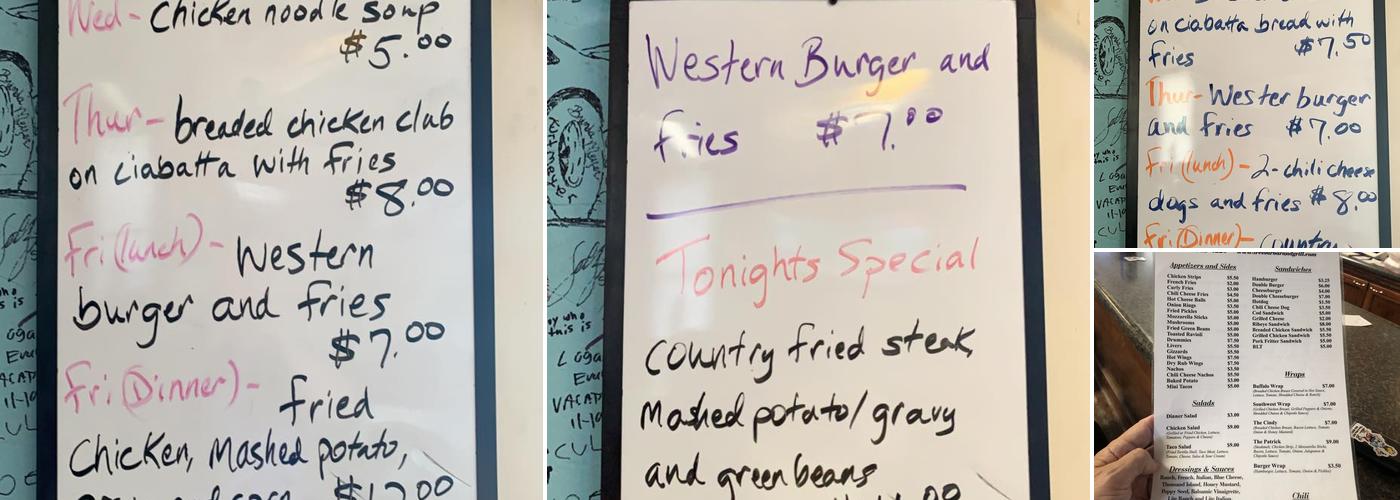 Wed- Chicken noodle soup
$5.00
Thur- breaded chicken club
on ciabatta with fries
$8.00
Fri(lunch)- Western
burger and fries
$7.00
Fri(Dinner)- fried
Chicken, Mashed potato,
Western Burger and
fries $7.00
Tonights Special
country fried steak,
Mashed potato/gravy
and green beans
on ciabatta bread with
fries $7.50
Thur- Wester burger
and fries $7.00
Fri(lunch)- 2- chili cheese
dogs and fries $8.00
Fri(Dinner)- Country
Appetizers and Sides
Chicken Strips $5.50
French Fries $2.00
Curly Fries $3.00
Chili Cheese Fries $4.50
Hot Cheese Balls $5.00
Onion Rings $3.50
Fried Pickles $5.00
Mozzarella Sticks $5.00
Mushrooms $5.00
Fried Green Beans $5.00
Toasted Ravioli $5.00
Drummies $7.50
Livers $5.50
Gizzards $5.50
Hot Wings $7.50
Dry Rub Wings $7.50
Nachos $3.50
Chili Cheese Nachos $5.50
Baked Potato $3.00
Mini Tacos $5.00
Salads
Dinner Salad $3.00
Chicken Salad $9.00
(Grilled or Fried Chicken, Lettuce,
Tomatoes, Peppers & Cheese)
Taco Salad $9.00
(Fried Tortilla Shell, Taco Meat, Lettuce,
Tomato, Cheese, Salsa & Sour Cream)
Dressings & Sauces
Ranch, French, Italian, Blue Cheese,
Thousand Island, Honey Mustard,
Poppy Seed, Balsamic Vinaigrette,
Sandwiches
Hamburger $3.25
Double Burger $6.00
Cheeseburger $4.00
Double Cheeseburger $7.00
Hotdog $1.50
Chili Cheese Dog $3.50
Cod Sandwich $5.00
Grilled Cheese $2.00
Ribeye Sandwich $8.00
Breaded Chicken Sandwich $5.50
Grilled Chicken Sandwich $5.50
Pork Fritter Sandwich $5.00
BLT $5.00
Wraps
Buffalo Wrap $7.00
(Breaded Chicken Breast Covered in Hot Sauce,
Lettuce, Tomato, Shredded Cheese & Ranch)
Southwest Wrap $7.00
(Grilled Chicken Breast, Grilled Peppers & Onions,
Shredded Cheese & Chipotle Sauce)
The Cindy $7.00
(Breaded Chicken Breast, Bacon, Lettuce, Tomato,
Onion & Honey Mustard)
The Patrick $9.00
Burger Wrap $3.50
(Hamburger, Lettuce, Tomato, Onion & Pickle)
Chili